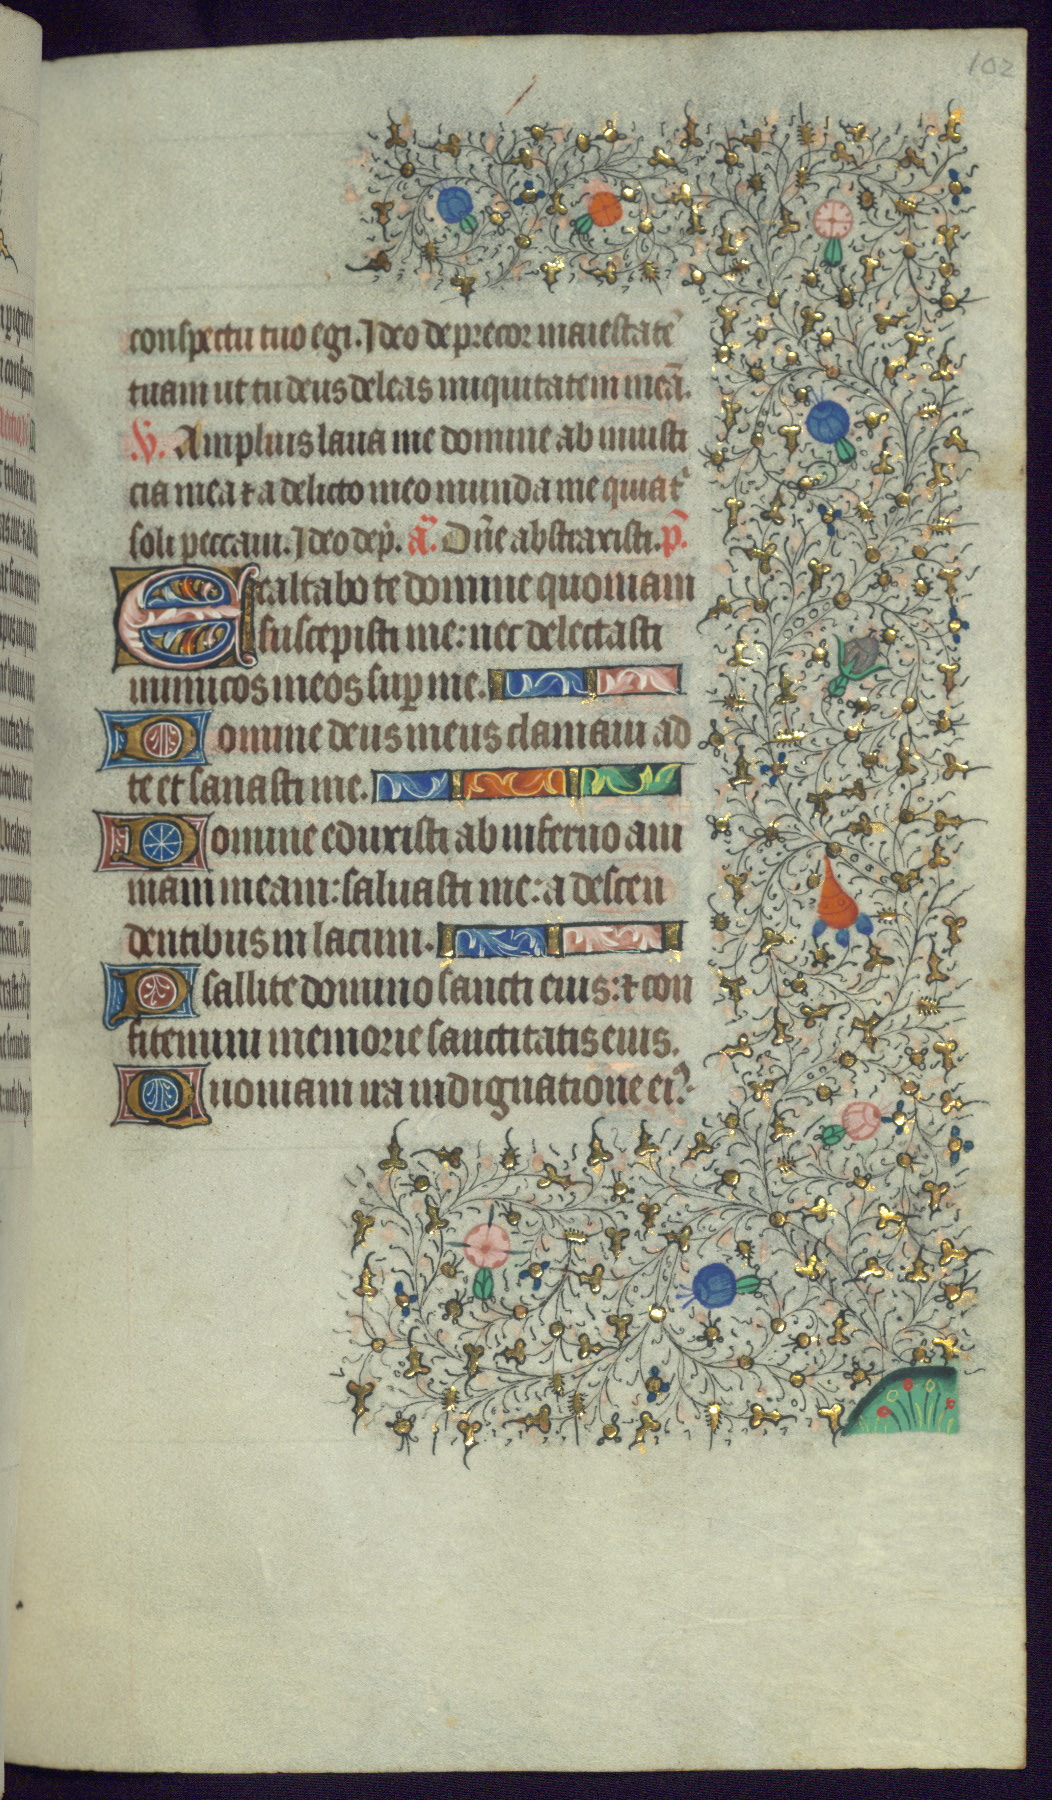 102
conspectu tuo egi. Ideo deprecor maiestatē
tuam ut tu deus deleas iniquitatem meā.
V. Amplius laua me domine ab iniusti
cia mea ⁊ a delicto meo munda me quia t̾
soli peccaui. Ideo dep̄. a͞. Dn̄e abstraxisti. p̄.
Exaltabo te domine quoniam
suscepisti me: nec delectasti
inimicos meos sup̱ me.
Domine deus meus clamaui ad
te et sanasti me.
Domine eduxisti ab inferno ani
mam meam: saluasti me: a descen
dentibus in lacum.
Psallite domino sancti eius: ⁊ con
fitemini memorie sanctitatis eius.
Quoniam ira in dignatione eiꝰ.